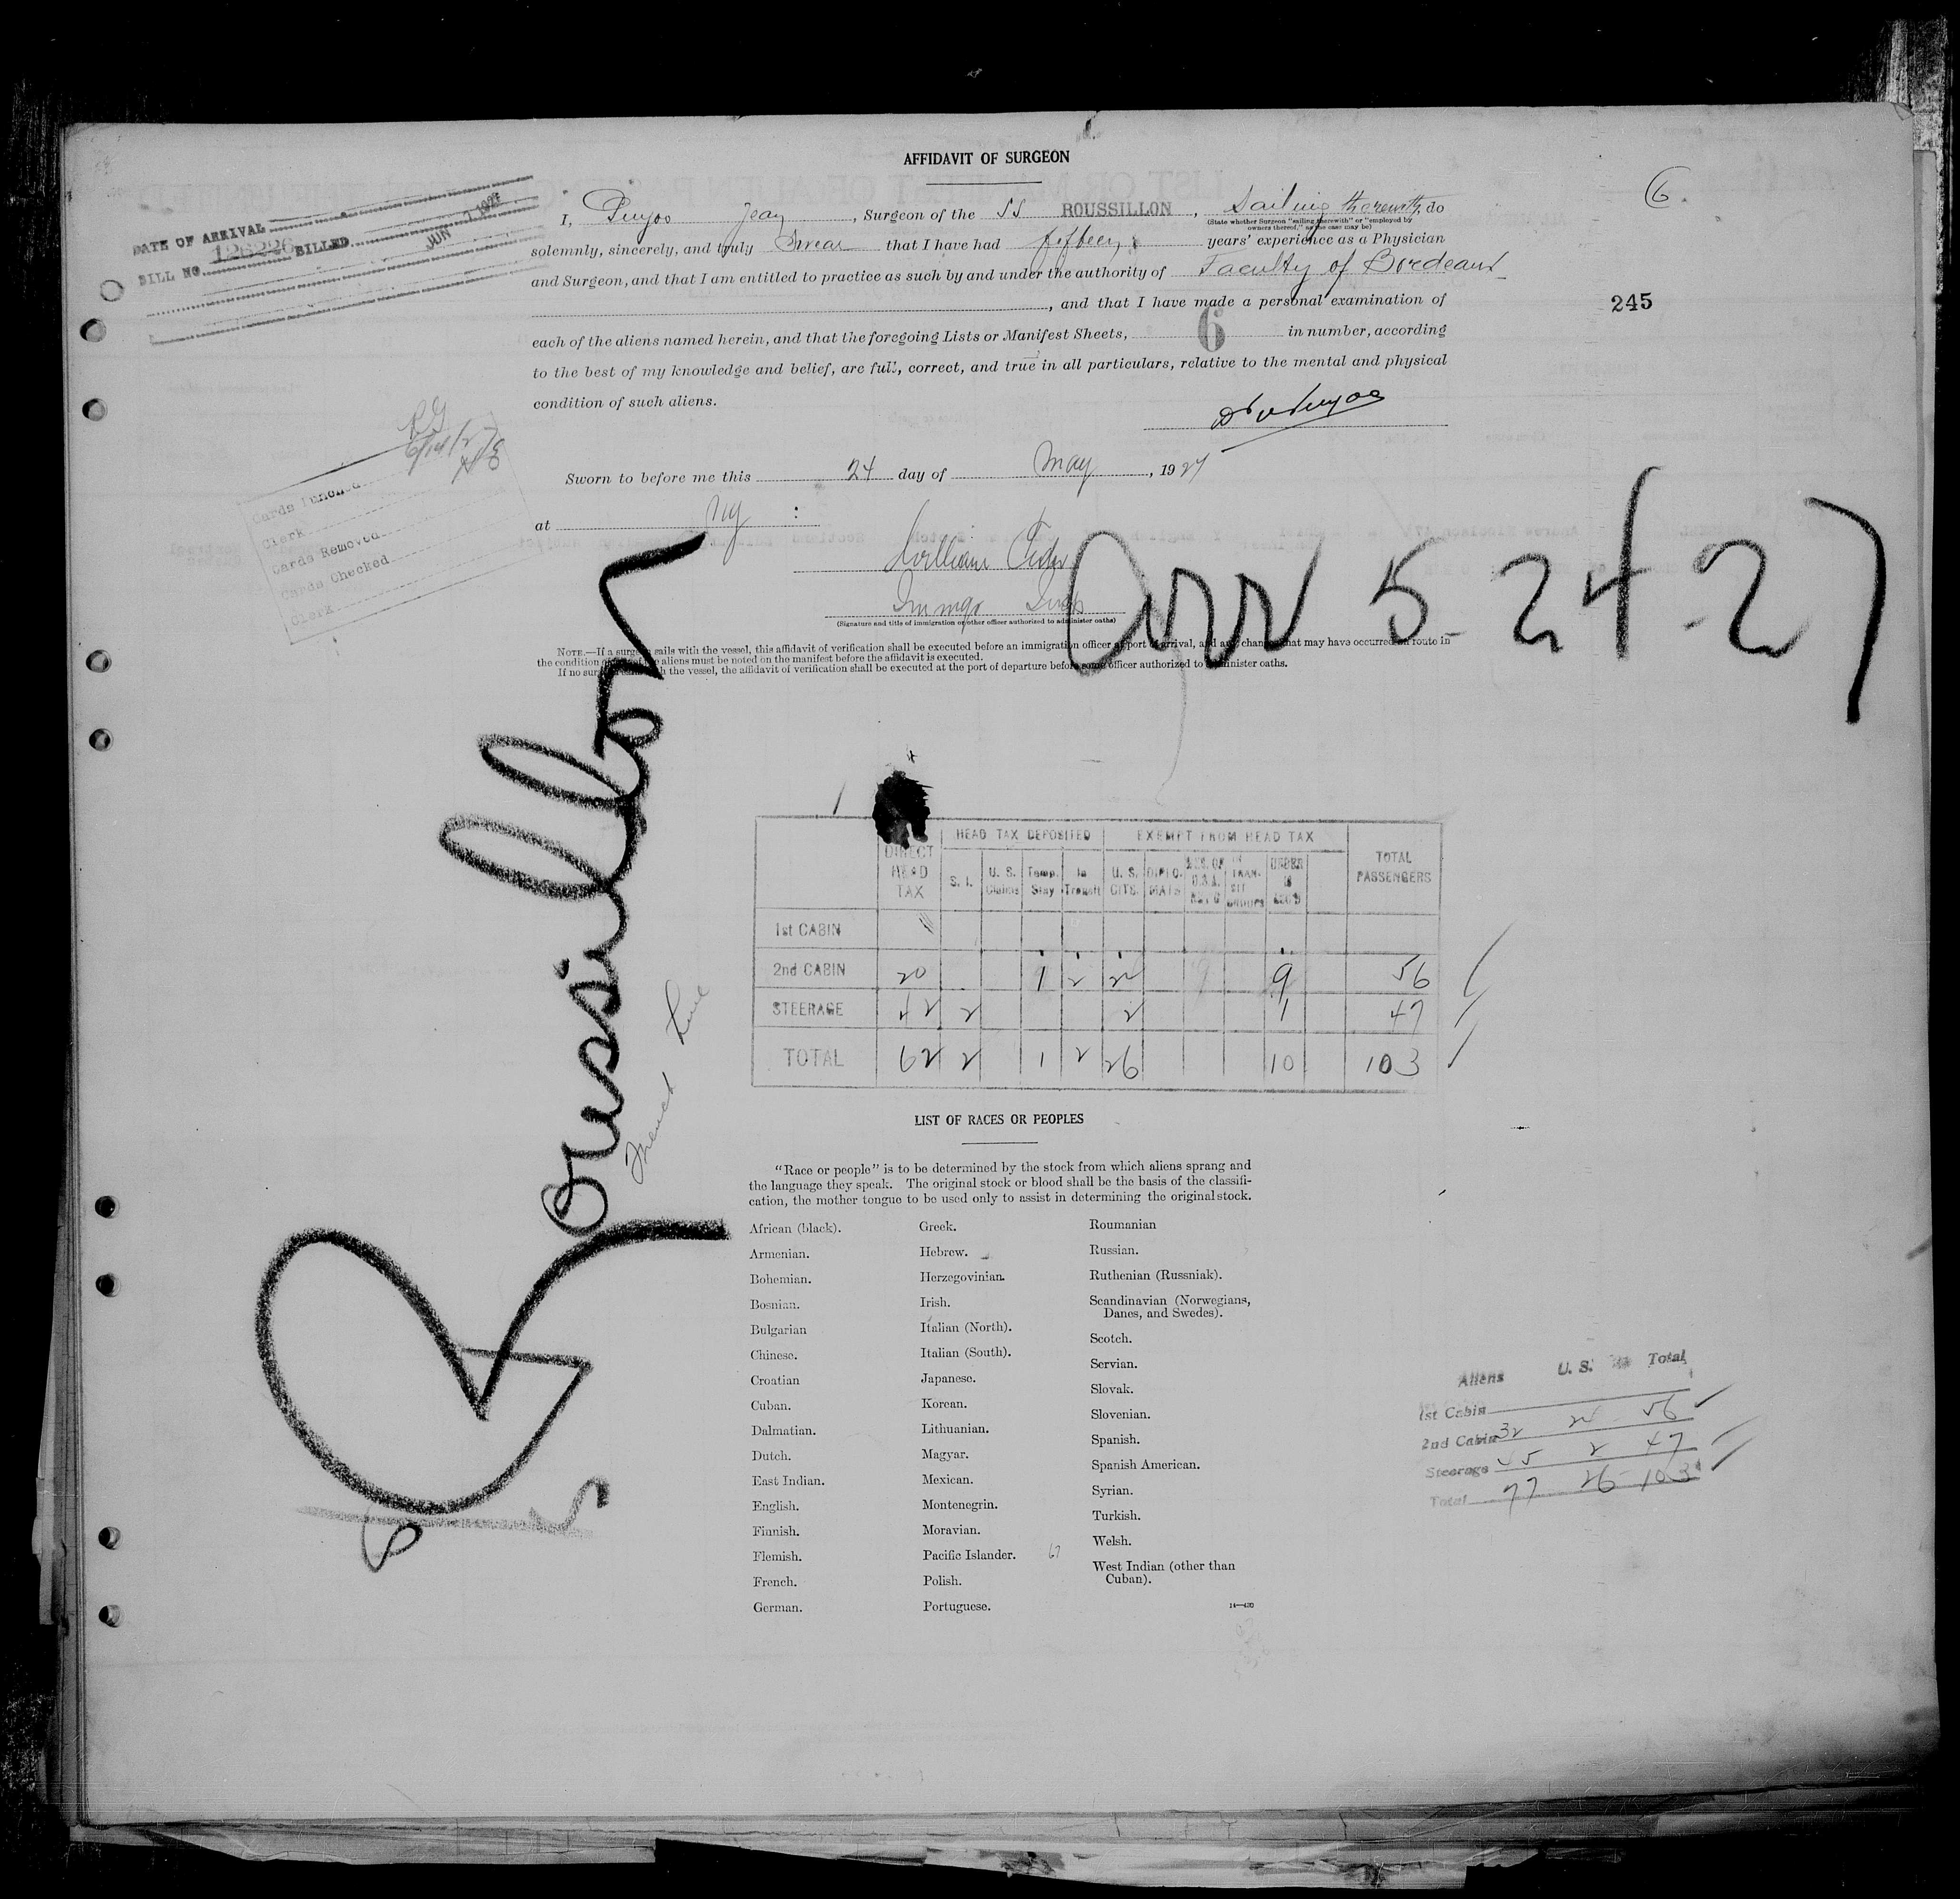 AFFIDAVIT OF SURGEON
6
I, Puyoo Jean, Surgeon of the SS ROUSSILLON, Sailing therewith, do
(State whether Surgeon "sailing therewith" or "employed by
owners thereof," as the case may be)
solemnly, sincerely, and truly Swear that I have had fifteen years' experience as a Physician
and Surgeon, and that I am entitled to practice as such by and under the authority of Faculty of Bordeaux
, and that I have made a personal examination of
245
each of the aliens named herein, and that the foregoing Lists or Manifest Sheets, 6 in number, according
to the best of my knowledge and belief, are full, correct, and true in all particulars, relative to the mental and physical
condition of such aliens.
DATE OF ARRIVAL
BILL NO. 126226 BILLED JUN 7 1927
Cards Punched
Clerk
Cards Removed
Cards Checked
Clerk
Sworn to before me this 24 day of May, 1927
at NY :
William
Immgr Insp
(Signature and title of immigration or other officer authorized to administer oaths)
Arr 5-24-27
NOTE.—If a surgeon sails with the vessel, this affidavit of verification shall be executed before an immigration officer at port of arrival, and any change that may have occurred en route in
the condition of the aliens must be noted on the manifest before the affidavit is executed.
If no surgeon sails with the vessel, the affidavit of verification shall be executed at the port of departure before some officer authorized to administer oaths.
Roussillon
French Line
DIRECT HEAD TAX HEAD TAX DEPOSITED EXEMPT FROM HEAD TAX TOTAL PASSENGERS
S. I. U. S. Claims Temp. Stay In Transit U. S. CITS. DIPLOMATS UNDER 16
1st CABIN
2nd CABIN 20 1 2 24 9 56
STEERAGE 42 2 2 1 47
TOTAL 62 2 1 2 26 10 103
LIST OF RACES OR PEOPLES
"Race or people" is to be determined by the stock from which aliens sprang and
the language they speak. The original stock or blood shall be the basis of the classifi-
cation, the mother tongue to be used only to assist in determining the original stock.
African (black).
Armenian.
Bohemian.
Bosnian.
Bulgarian
Chinese.
Croatian
Cuban.
Dalmatian.
Dutch.
East Indian.
English.
Finnish.
Flemish.
French.
German.
Greek.
Hebrew.
Herzegovinian.
Irish.
Italian (North).
Italian (South).
Japanese.
Korean.
Lithuanian.
Magyar.
Mexican.
Montenegrin.
Moravian.
Pacific Islander.
Polish.
Portuguese.
Roumanian
Russian.
Ruthenian (Russniak).
Scandinavian (Norwegians,
Danes, and Swedes).
Scotch.
Servian.
Slovak.
Slovenian.
Spanish.
Spanish American.
Syrian.
Turkish.
Welsh.
West Indian (other than
Cuban).
14—430
Aliens U. S. Total
1st Cabin
2nd Cabin 32 24 56
Steerage 45 2 47
Total 77 26 103